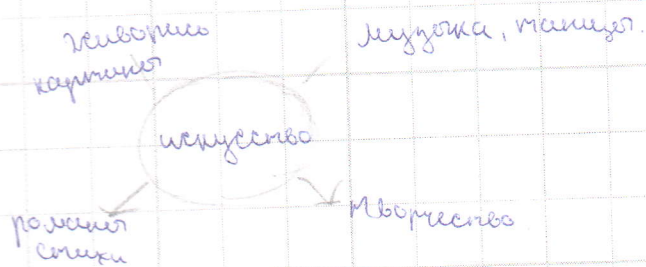 живопись
картины
музыка, танцы.
искусство
романы
стихи
творчество